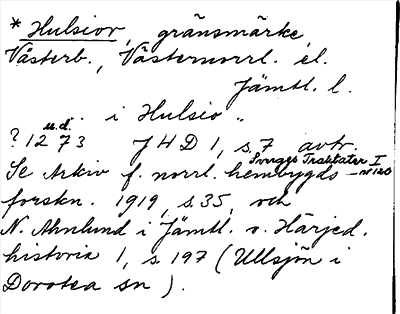 * Hulsior, gränsmärke,
Västerb., Västernorrl. el.
Jämtl. l.
.. i Hulsio ..
u.d.
? 1273 JHD 1, s. 7 avtr.
Sveriges Traktater I
Se Arkiv f. norrl. hembygds- nr 120
forskn. 1919, s. 35, och
N. Ahnlund i Jämtl. o. Härjed.
historia 1, s. 197 (Ullsjön i
Dorotea sn).